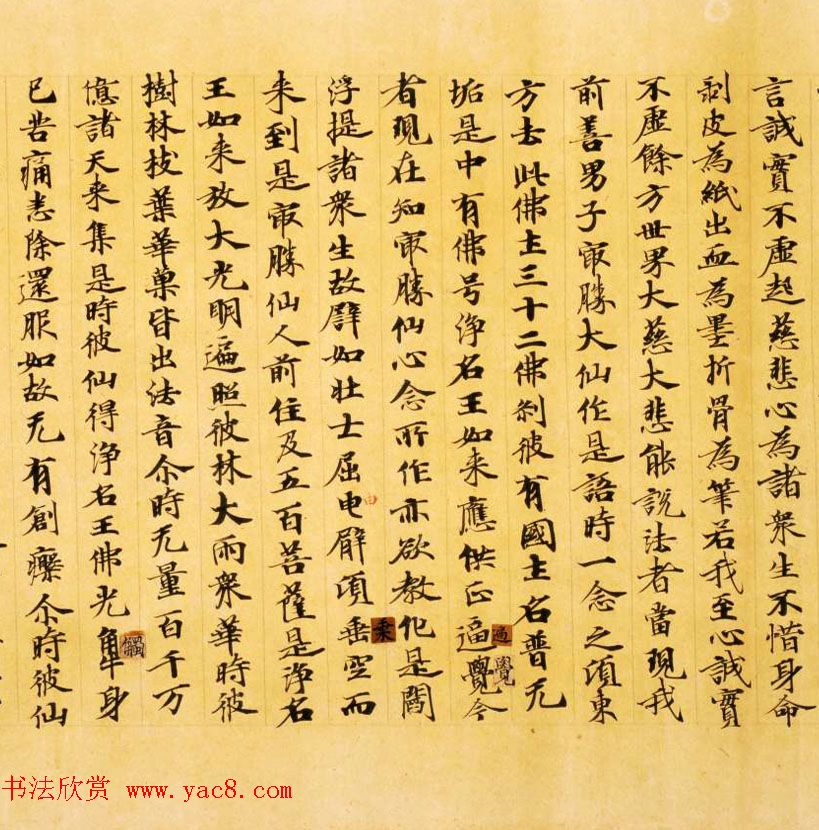 言誠實不虛起慈悲心為諸衆生不惜身命
剥皮為紙出血為墨折骨為筆若我至心誠實
不虛餘方世界大慈大悲能說法者當現我
前善男子㝡勝大仙作是語時一念之頃東
方去此佛土三十二佛刹彼有國土名普无
垢是中有佛号淨名王如来應供正遍覺今
者現在知㝡勝仙心念所作亦欲教化是閻
浮提諸衆生故譬如壯士屈申臂頃垂空而
来到是㝡勝仙人前住及五百菩薩是淨名
王如来放大光明遍照彼林大雨衆華時彼
樹林枝葉華菓皆出法音尒時无量百千万
億諸天来集是時彼仙得淨名王佛光觸身
已苦痛悉除還服如故无有創癥尒時彼仙
遍
覺
乘
觸
书法欣赏 www.yac8.com